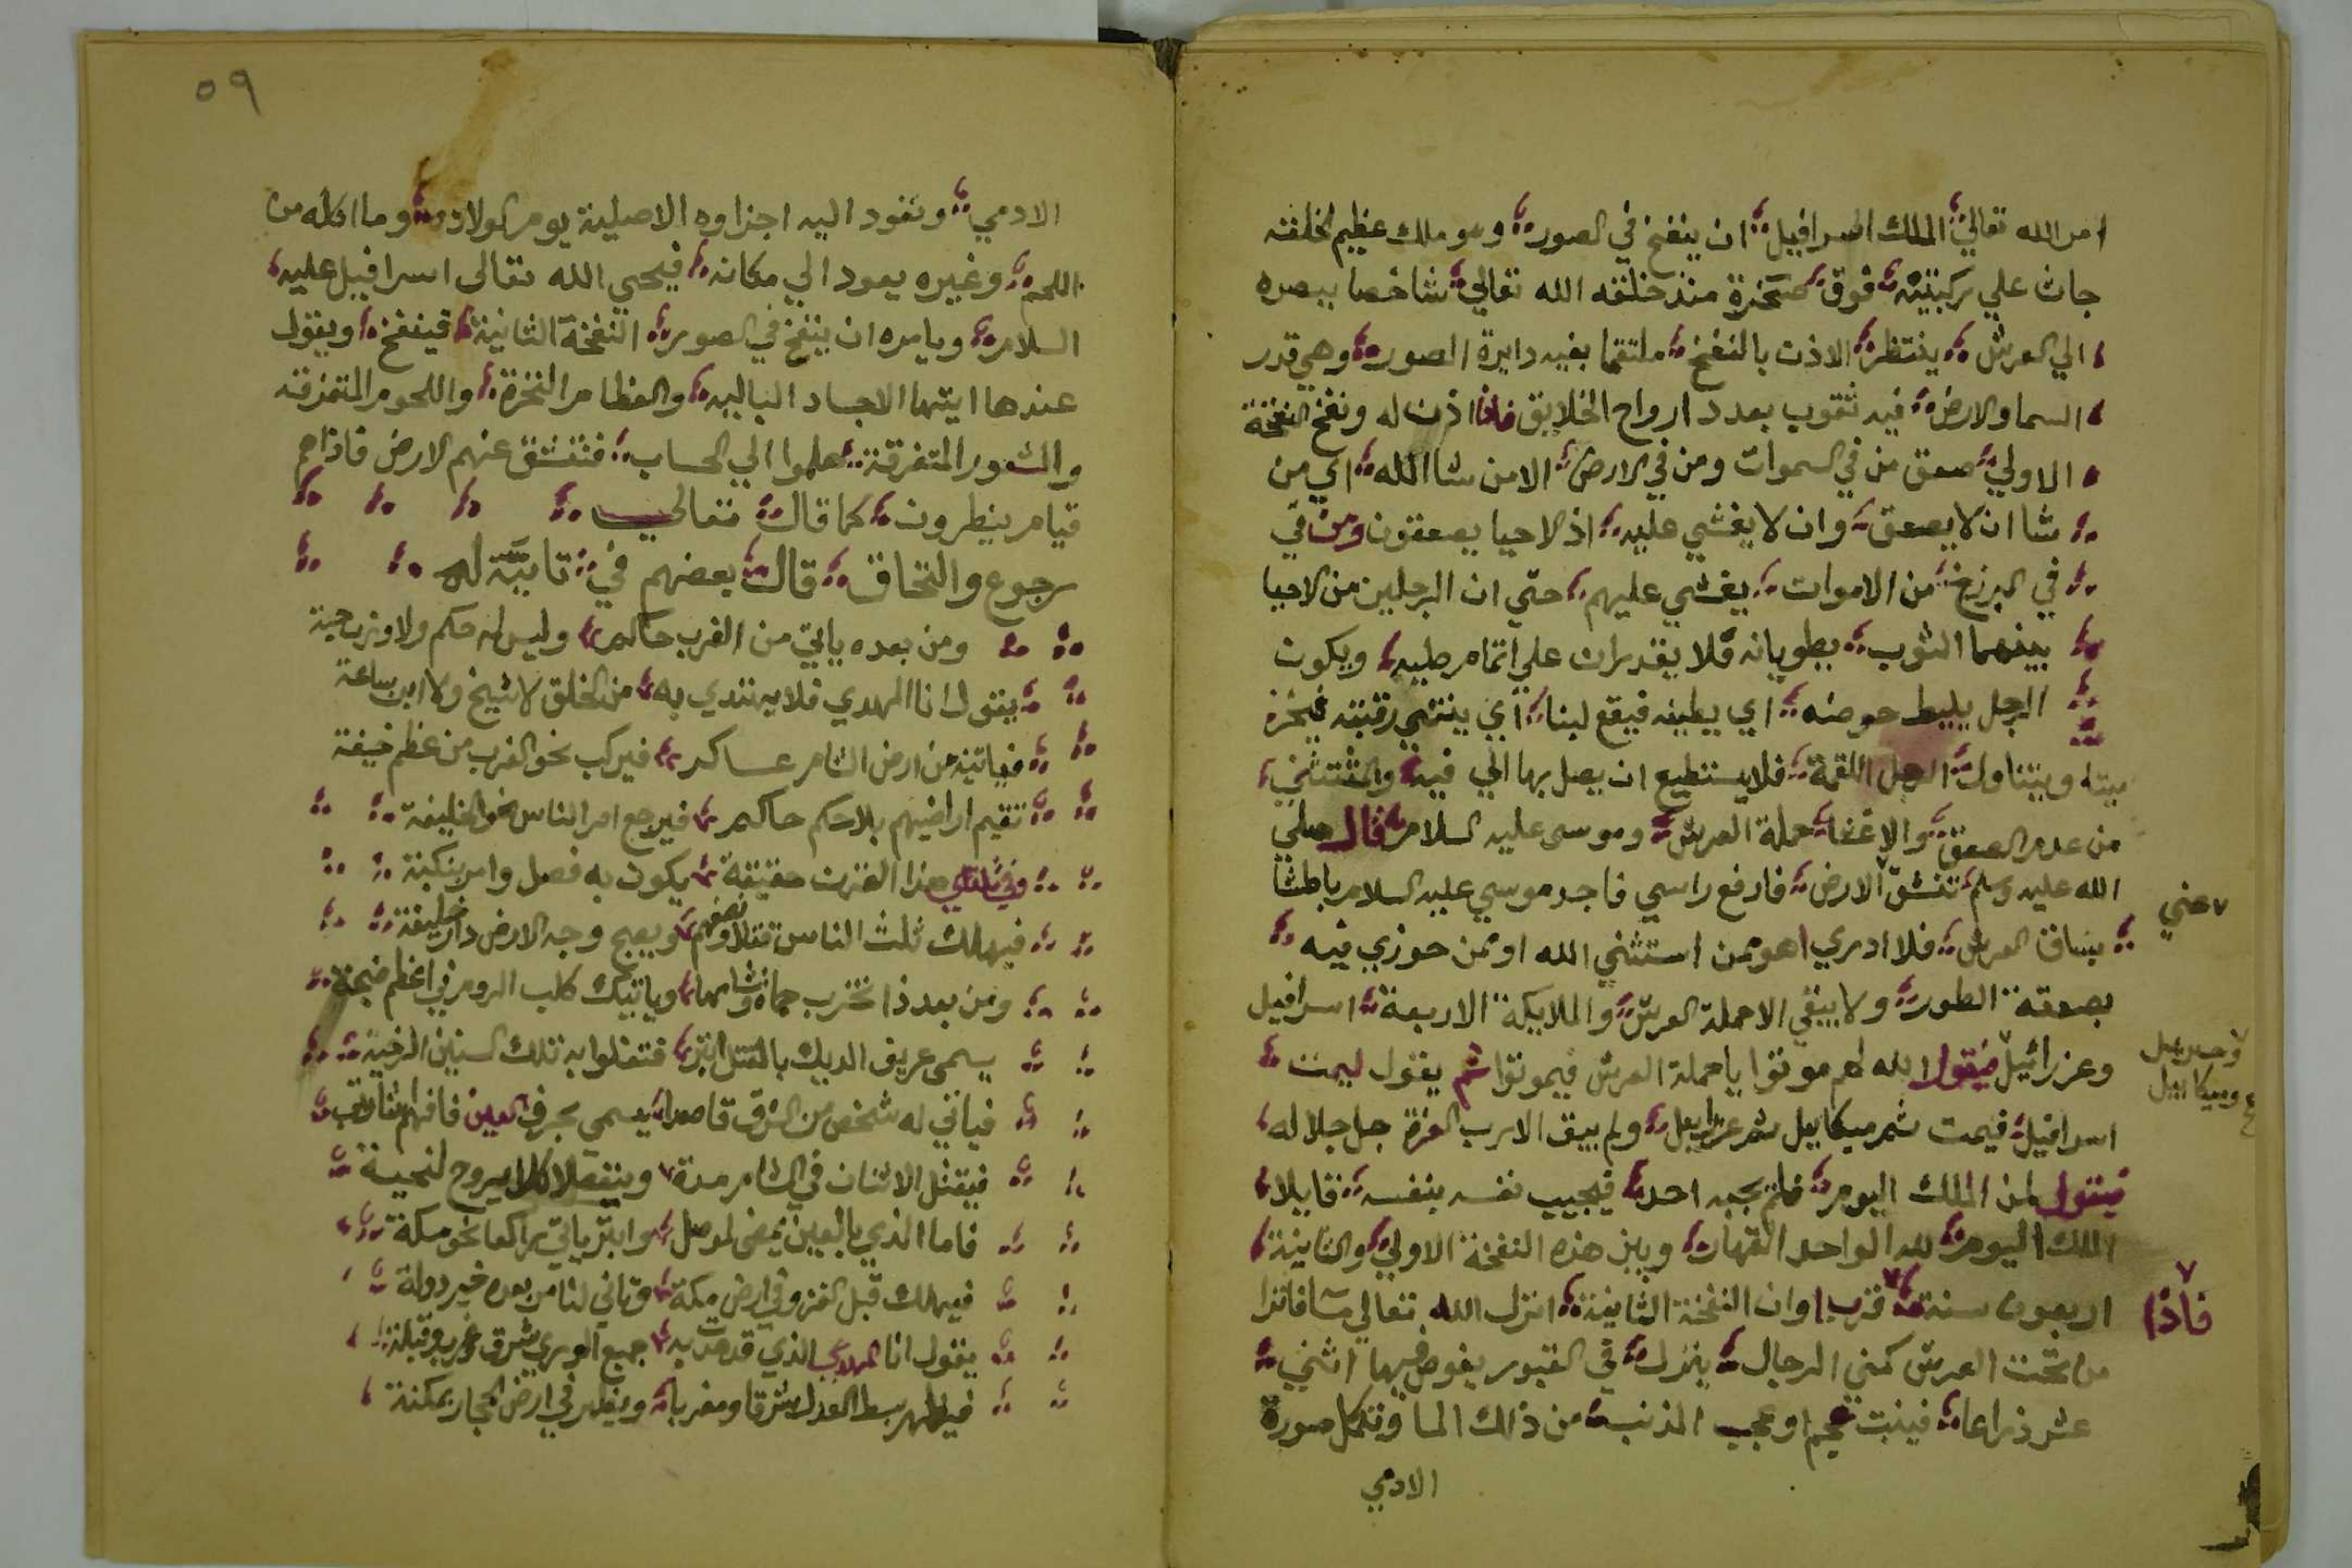 امر الله تعالي الملك اسرافيل ان ينفخ في الصور وهو ملك عظيم الخلقة
جاث علي ركبتيه فوق صخرة منذ خلقه الله تعالي شاخصا ببصره
الي العرش ينتظر الاذن بالنفخ ملتقما بفيه دايرة الصور وهي قدر
السما والارض فيه ثقوب بعدد ارواح الخلايق فاذا اذن له ونفخ النفخة
الاولي صعق من في السموات ومن في الارض الا من شا الله اي من
شا ان لا يصعق وان لا يغشي عليه اذ الاحيا يصعقون ومن في
في البرزخ من الاموات يغشي عليهم حتي ان الرجلين من الاحيا
بينهما الثوب يطويانه فلا يقدران علي اتمام طيه ويكون
الرجل يليط حوضه اي يطينه فيقع لبنا اي ينثني رقبته فيخر
ميتا ويتناول الرجل اللقمة فلا يستطيع ان يصل بها الي فيه والمستثني
من عدم الصعق والاغما حملة العرش وموسى عليه السلام قال صلي
الله عليه وسلم تنشق الارض فارفع راسي فاجد موسي عليه السلام باطشا
بساق العرش فلا ادري اهو ممن استثني الله او ممن حوزي فيه
يعني
بصعقة الطور ولا يبقي الا حملة العرش والملايكة الاربعة اسرافيل
وعزرائيل فيقول الله لهم موتوا يا حملة العرش فيموتوا ثم يقول ليمت
وجبريل
وميكاييل
اسرافيل فيمت ثم ميكاييل ثم عزراييل ولم يبق الا رب العزة جل جلاله
فيقول لمن الملك اليوم فلم يجبه احد فيجيب نفسه بنفسه قايلا
الملك اليوم لله الواحد القهار وبين هذه النفخة الاولي والثانية
اربعون سنة قرب اوان النفخة الثانية انزل الله تعالي ما فاترا
فاذا
من تحت العرش كمني الرجال ينزل في القبور يغوص فيها اثني
عشر ذراعا فينبت عجم او عجب الذنب من ذالك الما وتكمل صورة
الادمي
٥٩
الادمي وتعود اليه اجزاوه الاصلية يوم الولادة وما اكله من
اللحم وغيره يعود الي مكانه فيحيي الله تعالى اسرافيل عليه
السلام ويامره ان ينفخ في الصور النفخة الثانية فينفخ ويقول
عندها ايتها الاجساد الباليه والعظام النخرة واللحوم المتمزقه
والشعور المتفرقة هلموا الي الحساب فتنشق عنهم الارض فاذا هم
قيام ينظرون كما قال تعالي
رجوع والتحاق قال بعضهم في تاييّة له
ومن بعده ياتي من الغرب حاكم وليس له حكم ولا وزن حبة
يقول انا المهدي فلا يهتدي به من الخلق لا شيخ ولا ابن ساعة
فياتيه من ارض الشام عساكر فيركب نحو الغرب من عظم خيفة
تقيم اراضيهم بلا حكم حاكم فيرجع امر الناس نحو الخليفة
وفي ثلثي هذا القرن حقيقة يكون به فصل وامر بنكبة
فيهلك ثلث الناس قتلا ونصفهم ويصبح وجه الارض دار خليفة
ومن بعد ذا تخرب حماة وشامها وياتيك كلب الروم في اعظم ضجة
يسمى عريف الديك بالقتل ابتر فتغلوا به تلك السنين الرخية
فياتي له شخص من الشرق قاصدا يسمي بحرف العين فافهم
فيقتل الاثنان في الشام مدة وينفصلا كلا يروح لنحية
فاما الذي بالعين يمضى لموصل وابتر ياتي راكعا نحو مكة
فيهلك قبل الغزو في ارض مكة وتاني لنا من بعده خير دولة
يقول انا المهدي الذي قد هديت به جميع الوري شرق وغرب وقبلة
فيظهر بسط العدل شرقا ومغربا ويظهر في ارض الحجاز بمكنة